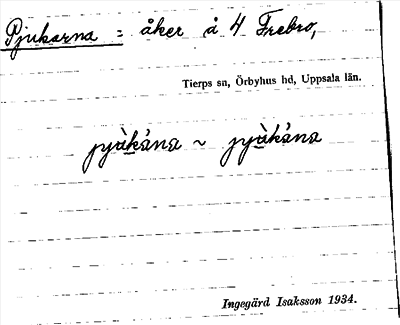 Pjukarna = åker å 4 Frebro,
Tierps sn, Örbyhus hd, Uppsala län.
pyàkána ~ pyàkána
Ingegärd Isaksson 1934.